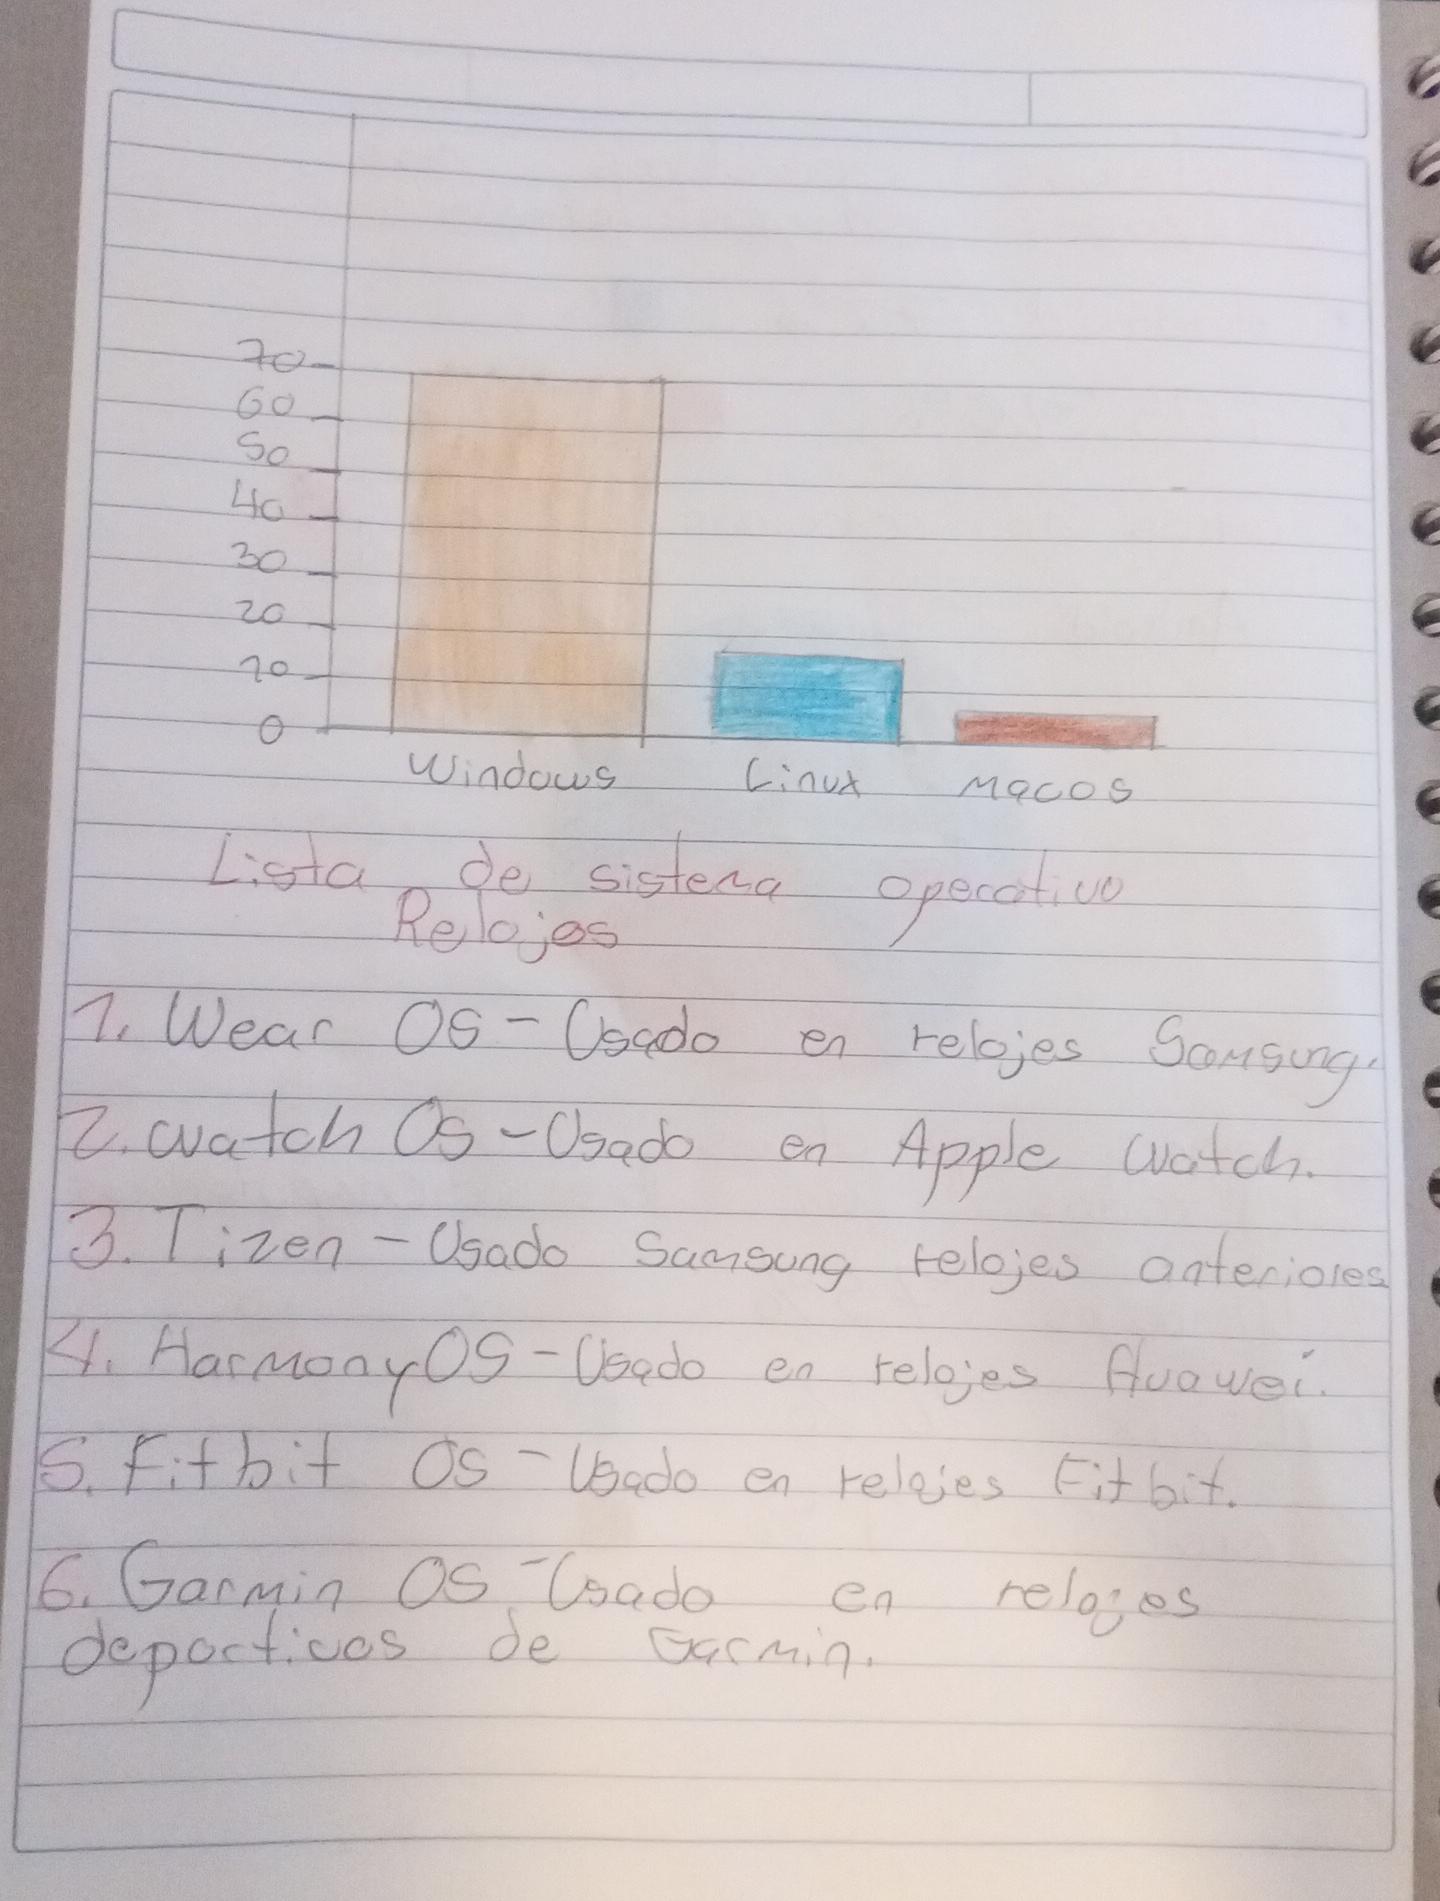 70
60
50
40
30
20
10
0
Windows Linux Macos
Lista de sistema operativo
Relojes
1. Wear OS - Usado en relojes Samsung.
2. watch OS - Usado en Apple Watch.
3. Tizen - Usado Samsung relojes anteriores
4. HarmonyOS - Usado en relojes Huawei.
5. Fitbit OS - Usado en relojes Fitbit.
6. Garmin OS - Usado en relojes
deportivos de Garmin.